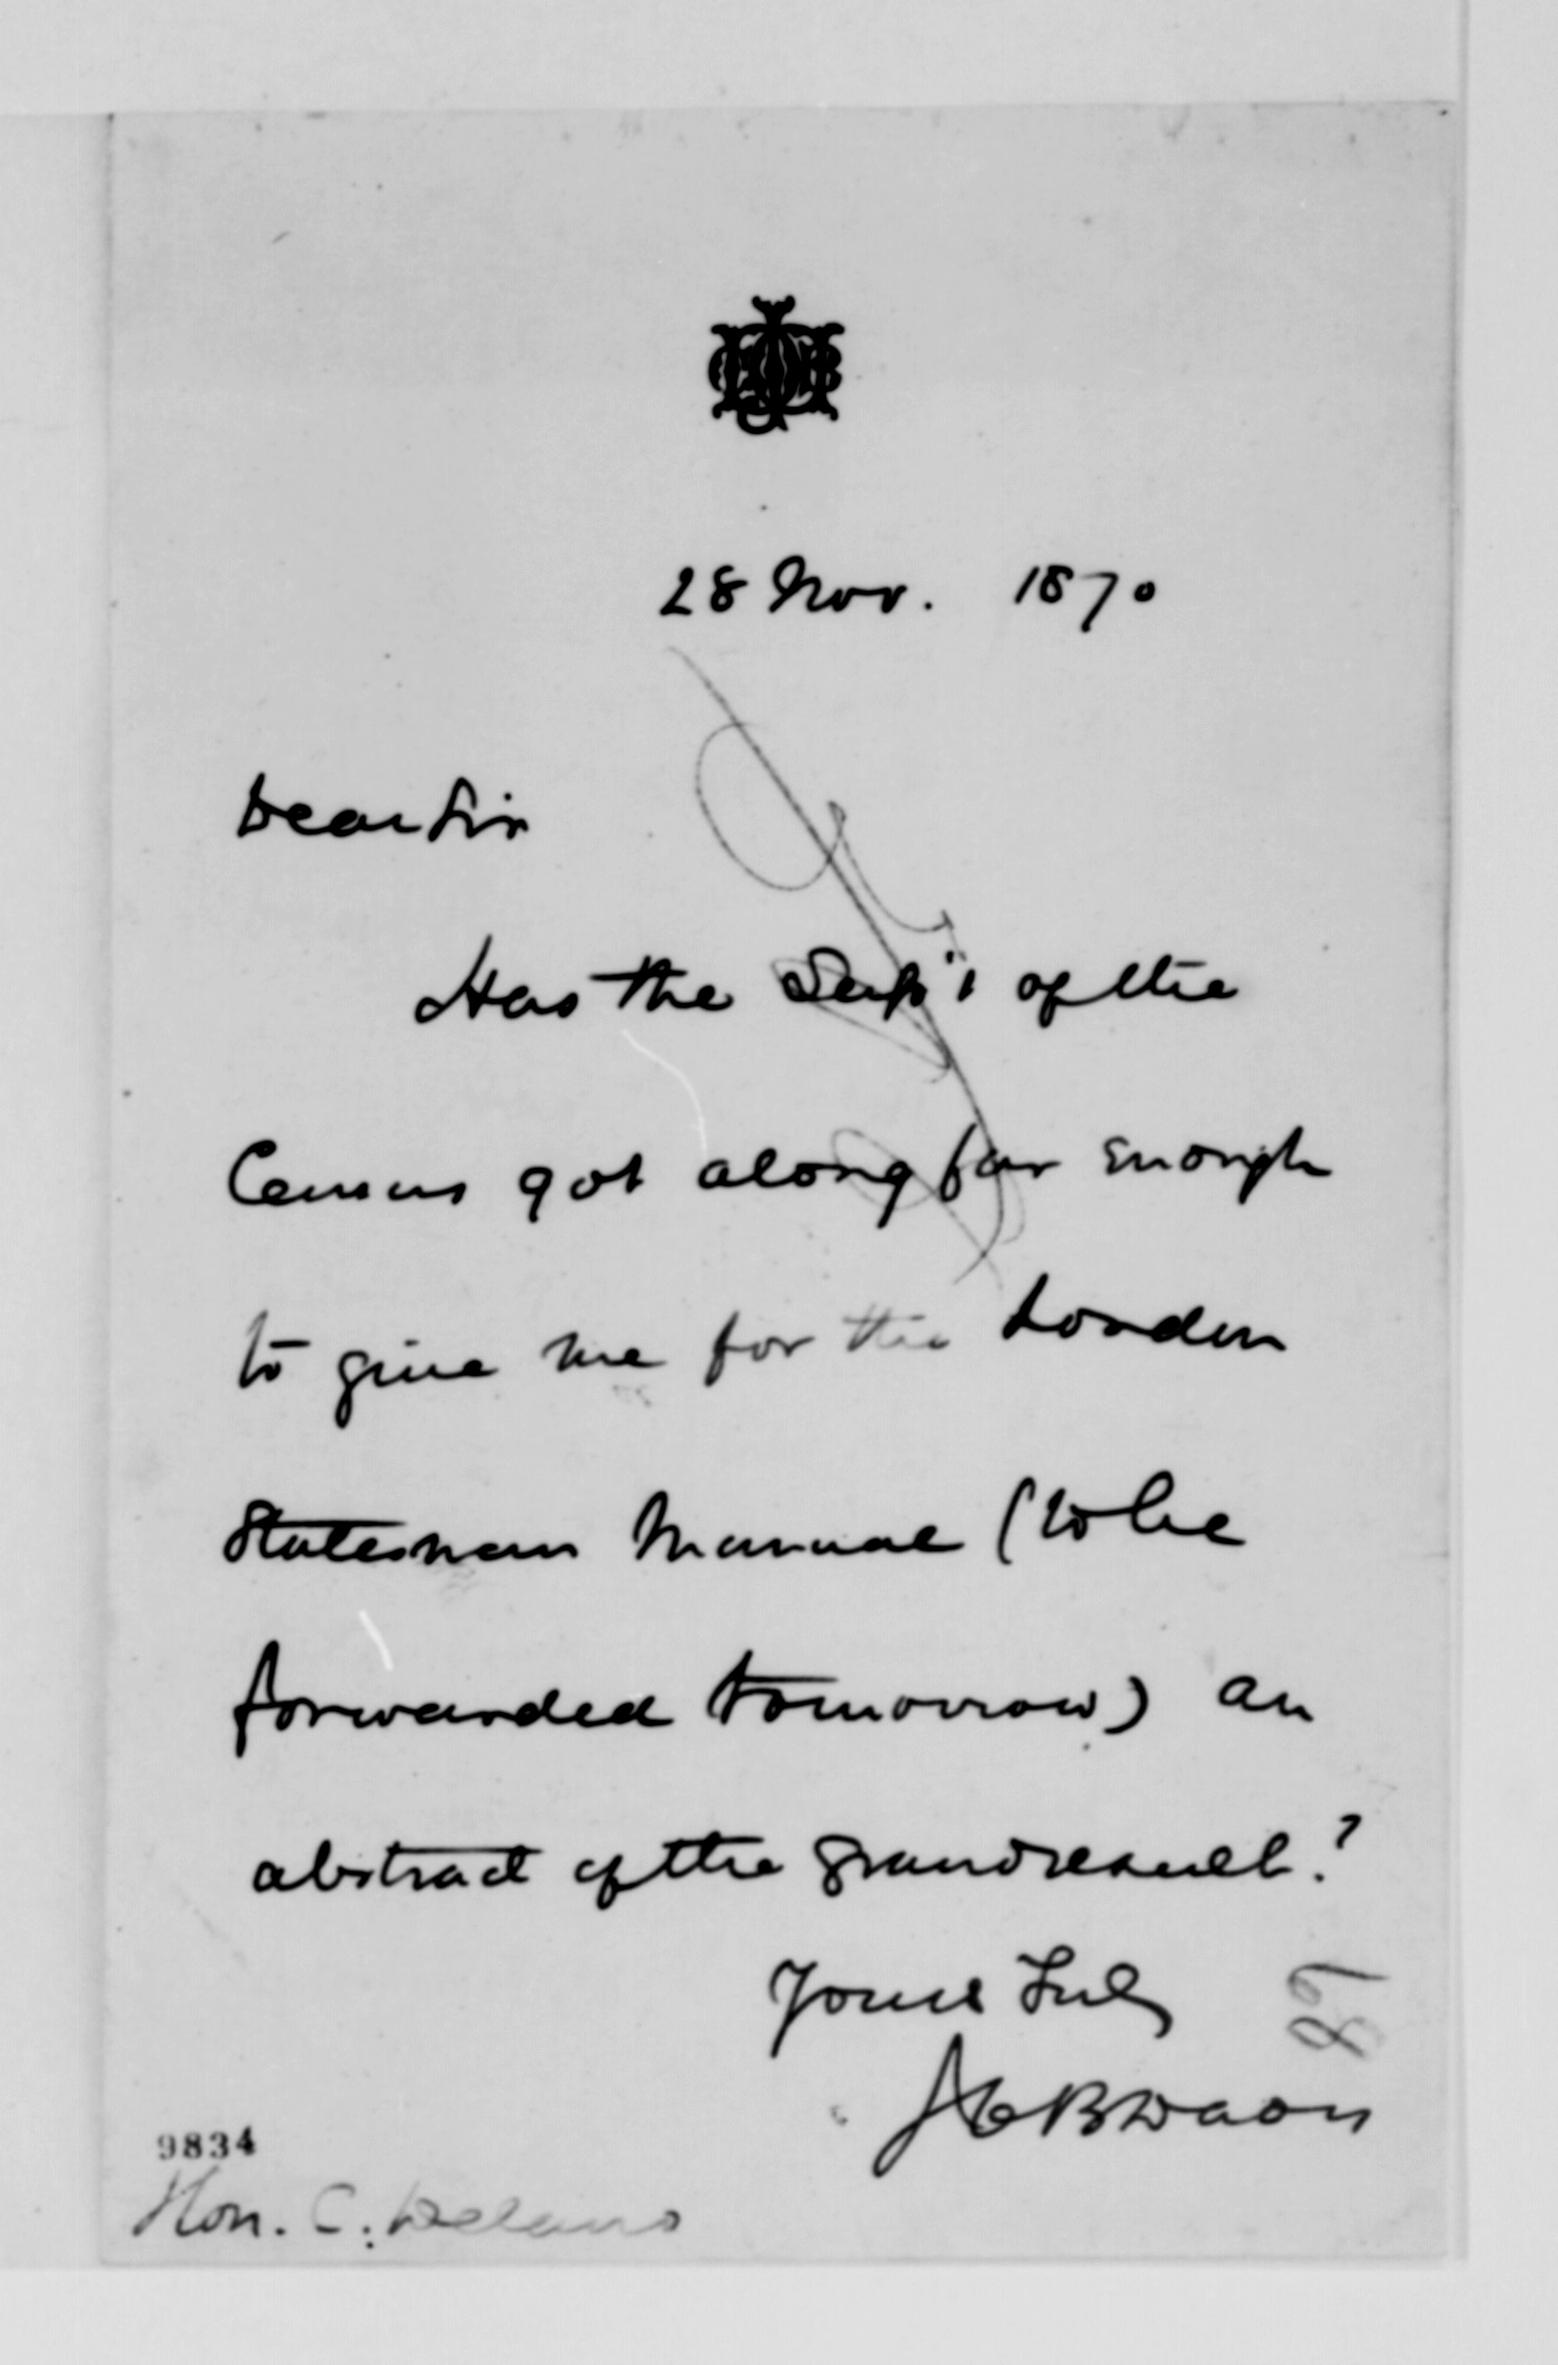 28 Nov. 1870
Dear Sir
Has the Sup't of the
Census got along far enough
to give me for the London
Statesman Manual (to be
forwarded tomorrow) an
abstract of the grand result?
Yours Truly
JCBDavis
87
9834
Hon. C. Delano